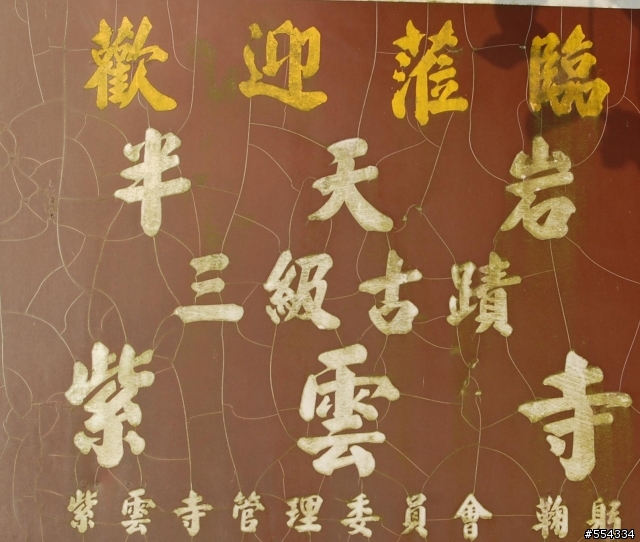 歡迎蒞臨
半天岩
三級古蹟
紫雲寺
紫雲寺管理委員會 鞠躬
#554334